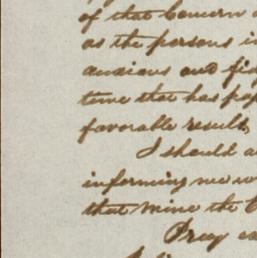 of that Concern
as the persons in
anxious and
time that has
favorable result,
I should
informing me
that mine the
Pray